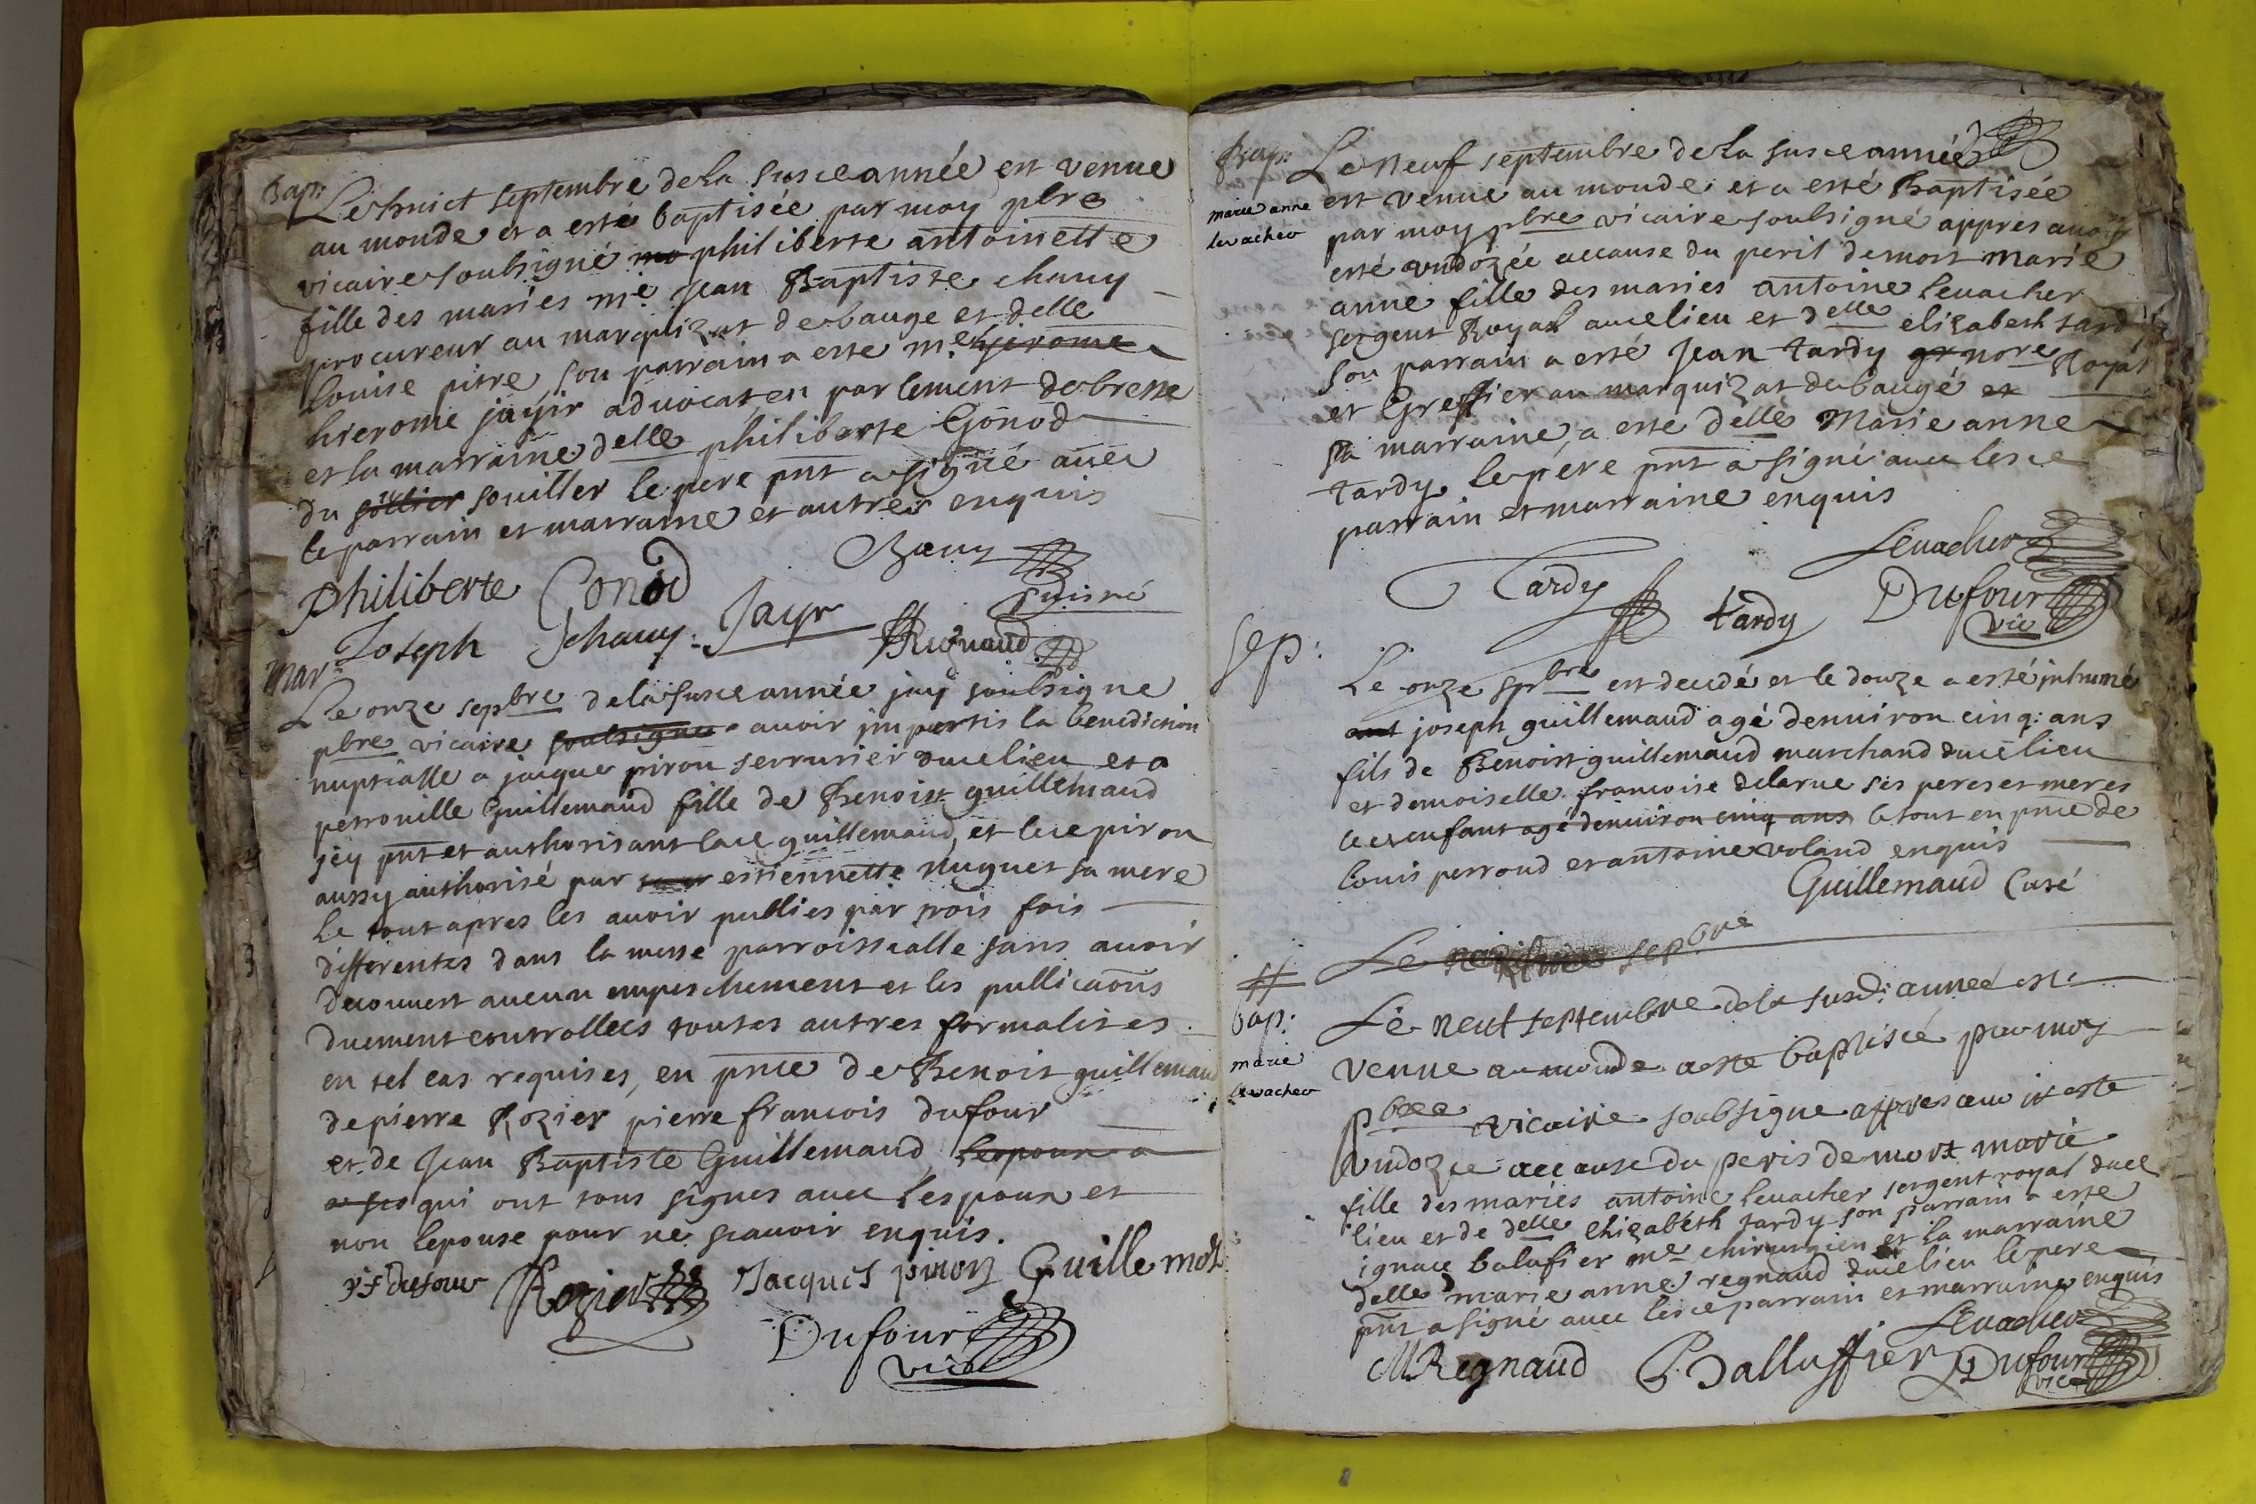 Bap:
Le huict septembre de la susce année est venue
au monde et a esté baptisée par moy pbre
vicaire soubsigné mo philiberte antoinette
fille des maries me Jean Baptiste chauy
procureur au marquizat de bauge et delle
louise pitre son parrain a este me hierome
hierome jayir advocat en parlement de bresse
et la marraine delle philiberte Gonod
du souiller le pere pnt a signé avec
le parrain et marraine et autres enquis
Philiberte Gonod
puisné
Joseph Chauy Jayr Regnaud
Mar:
Le onze sepbre de la susce année jay soubsigne
pbre vicaire soubsigne avoir jmpartis la benediction
nuptialle a jacque piron serrurier duce lieu et a
petronille Guillemaud fille de Benoist guillemaud
jcy pnt et authorisant lace guillemaud, et lece piron
aussy authorisé par estiennette Nuguet sa mere
le tout apres les avoir publies par trois fois
differentes dans la messe parroissialle sans avoir
decouvert aucun empeschement et les publicaons
duement controllees toutes autres formalites
en tel cas requises, en pnce de Benoist guillemaud
de pierre Rozier pierre francois dufour
et de Jean Baptiste Guillemaud lespoux a
a ses qui ont tous signes avec lespoux et
non lepouse pour ne scavoir enquis.
p f dufour Rozier Jacques piron Guillemod
Dufour
vic
Bap:
marie anne
levacher
Le Neuf septembre de la susce année
est venue au monde et a esté Baptisée
par moy pbre vicaire soubsigné appres avoir
esté undozée accause du peril demort marie
anne fille des maries antoine levacher
sergent Royal auce lieu et delle elizabeth tardy
son parrain a esté Jean tardy gr nore Royal
et Greffier au marquizat de baugé et
sa marraine a este delle Marie anne
tardy le pere pnt a signé avec lesce
parrain et marraine enquis
Levacher
Tardy tardy Dufour
vic
Sep:
Le onze spbre est decedé et le douze a esté jnhumé
joseph guillemaud agé denuiron cinq: ans
fils de Benoist guillemaud marchand duce lieu
et demoiselle francoise delarue ses peres et meres
lece enfant agé denuiron cinq ans le tout en pnce de
louis perroud et antoine voland enquis
Guillemaud Curé
Le sepbre
bap:
marie
levacher
Le neuf septembre dela susd: année est
venue au monde a esté baptisée par moy
pbre vicaire soubsigne appres avoir este
undozee accause du peris de mort marie
fille des mariés antoine levacher sergent royal duce
lieu et de delle elizabeth tardy son parrain a este
ignace balufier me chirurgien et la marraine
delle marie anne regnaud duce lieu le pere
pnt a signé avec lesce parrain et marraine enquis
Levacher
M Regnaud Balluffier Dufour
vic